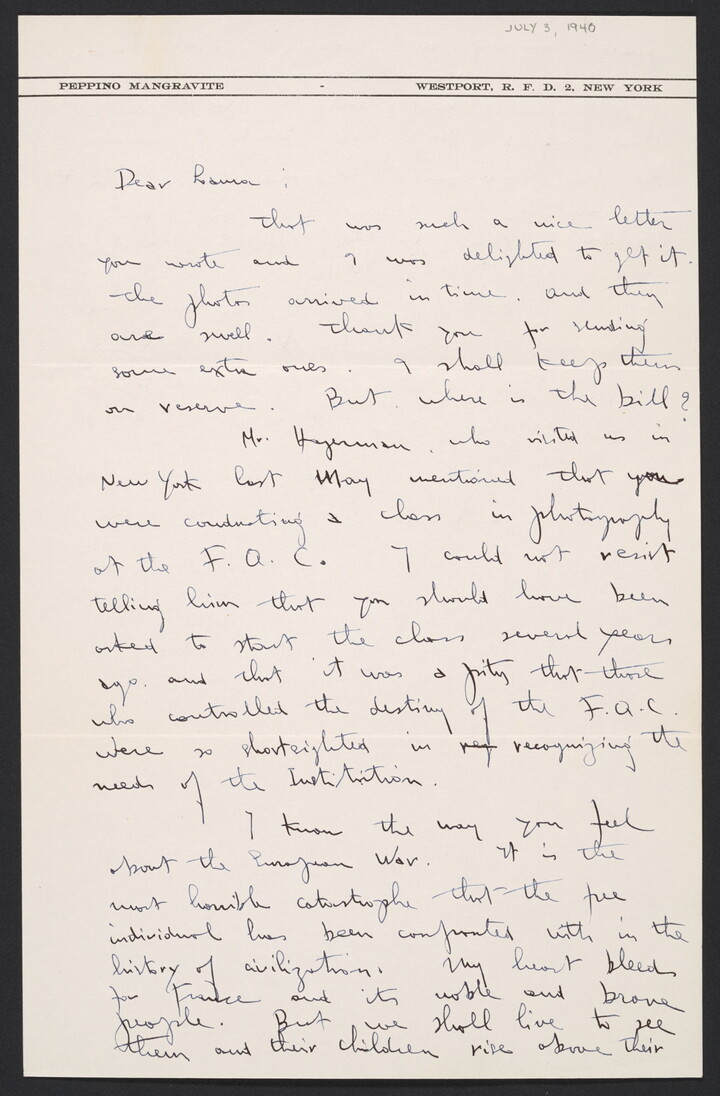 JULY 3, 1940
PEPPINO MANGRAVITE - WESTPORT, R. F. D. 2, NEW YORK
Dear Laura :
That was such a nice letter
you wrote and I was delighted to get it.
The photos arrived in time. and they
are swell. Thank you for sending
some extra ones. I shall keep them
on reserve. But where is the bill?
Mr. Hagerman, who visited us in
New York last May mentioned that you
were conducting a class in photography
at the F. A. C. I could not resist
telling him that you should have been
asked to start the class several years
ago. and that it was a pity that those
who controlled the destiny of the F.A.C.
were so shortsighted in reg recognizing the
needs of the Institution.
I know the way you feel
about the European War. It is the
most horrible catastrophe that the free
individual has been confronted with in the
history of civilization. My heart bleeds
for France and its noble and brave
people. But we shall live to see
them and their children rise above their